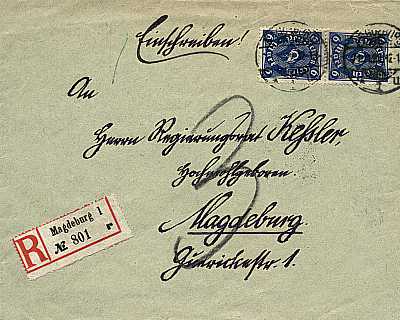 Einschreiben!
An
Herrn Regierungsrat Keßler,
Hochwohlgeboren
Magdeburg.
Guerickestr. 1.
Magdeburg 1
R № 801 r
3